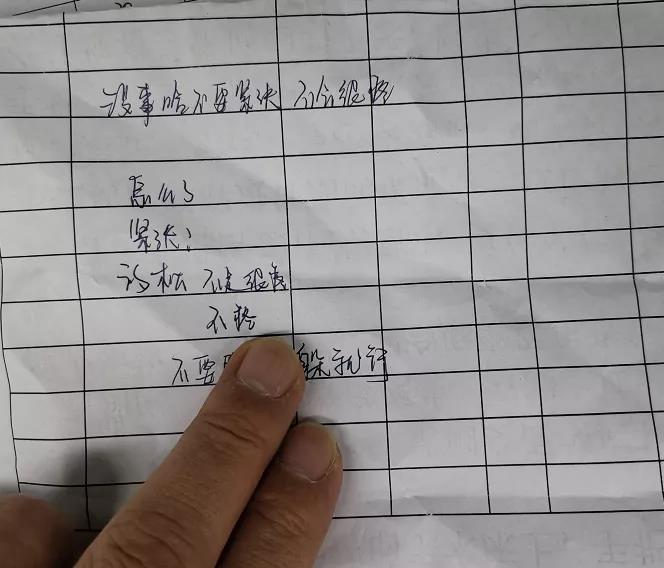 没事哈不要紧张 不会很疼
怎么了
紧张?
放松 不是很疼
不疼
不要 躲就行